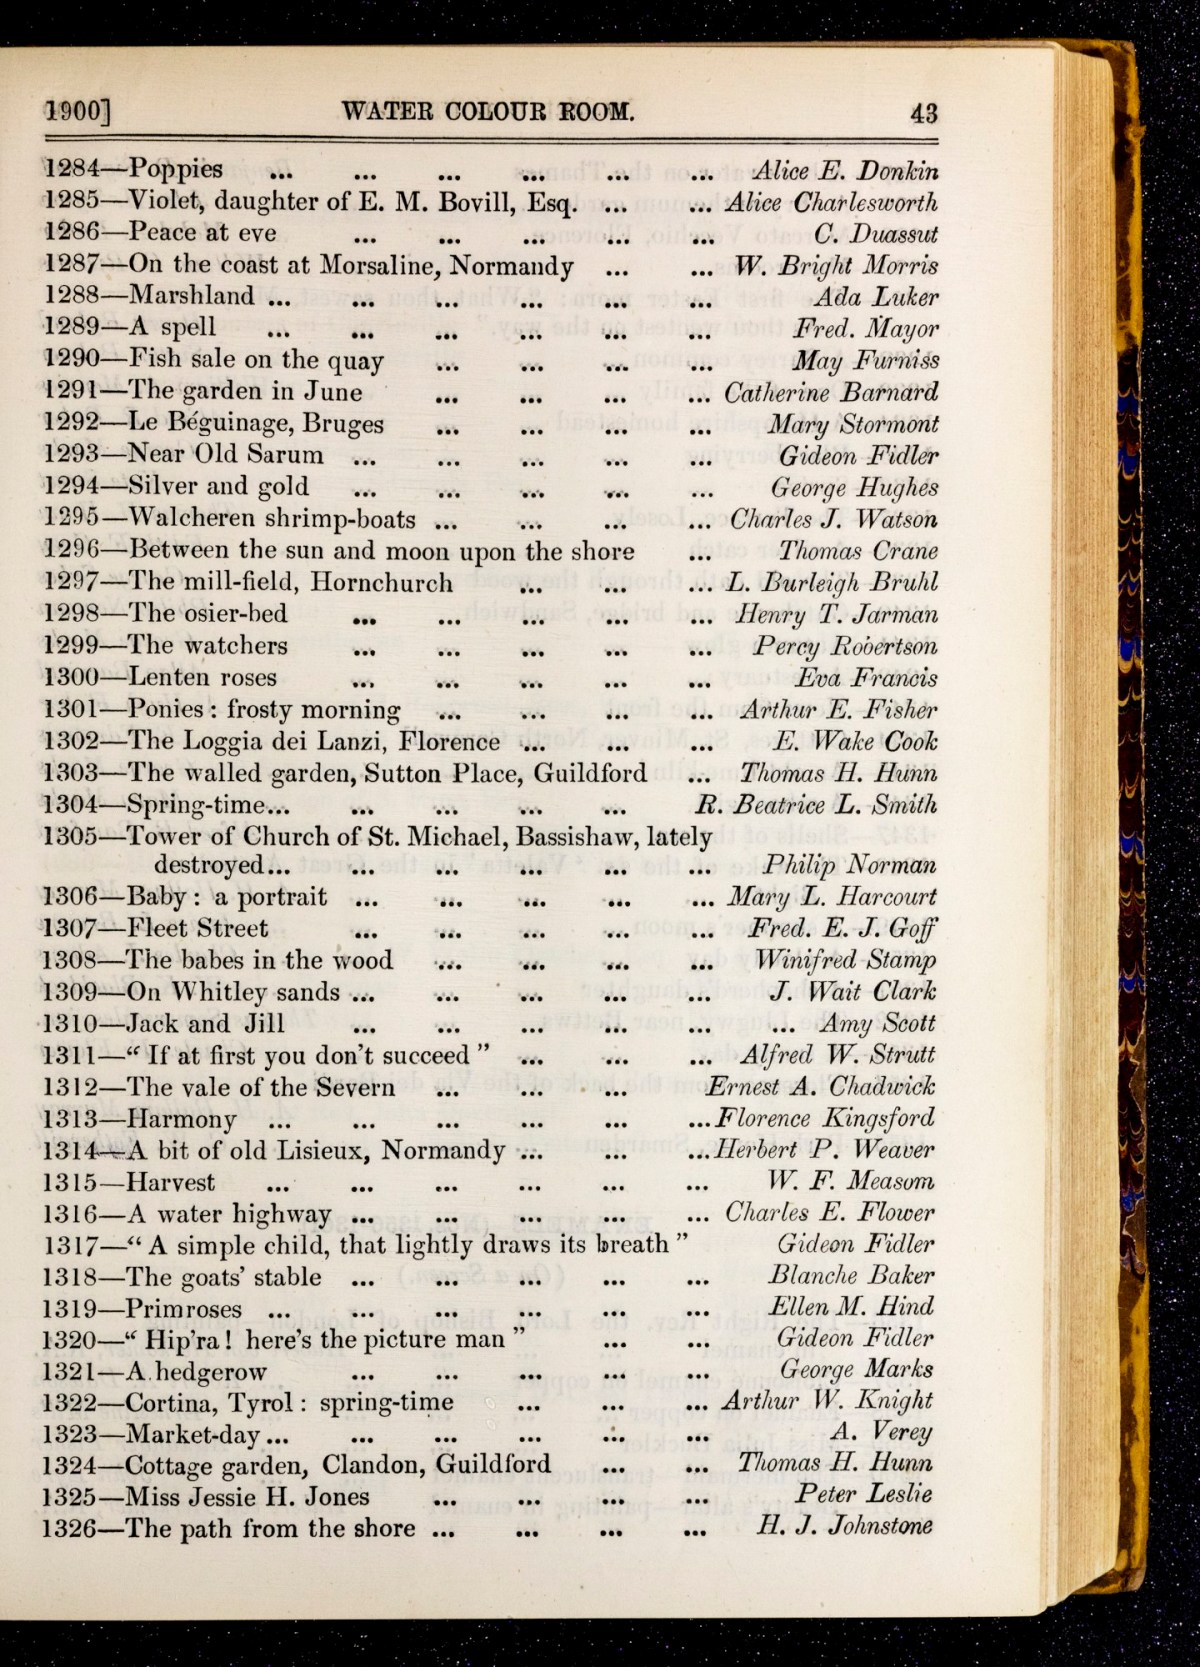 1900] WATER COLOUR ROOM. 43
1284—Poppies ... ... ... ... ... ... Alice E. Donkin
1285—Violet, daughter of E. M. Bovill, Esq. ... ... Alice Charlesworth
1286—Peace at eve ... ... ... ... ... C. Duassut
1287—On the coast at Morsaline, Normandy ... ... W. Bright Morris
1288—Marshland ... ... ... ... ... ... Ada Luker
1289—A spell ... ... ... ... ... ... Fred. Mayor
1290—Fish sale on the quay ... ... ... ... May Furniss
1291—The garden in June ... ... ... ... Catherine Barnard
1292—Le Béguinage, Bruges ... ... ... ... Mary Stormont
1293—Near Old Sarum ... ... ... ... ... Gideon Fidler
1294—Silver and gold ... ... ... ... ... George Hughes
1295—Walcheren shrimp-boats ... ... ... ... Charles J. Watson
1296—Between the sun and moon upon the shore ... Thomas Crane
1297—The mill-field, Hornchurch ... ... ... L. Burleigh Bruhl
1298—The osier-bed ... ... ... ... ... Henry T. Jarman
1299—The watchers ... ... ... ... ... Percy Robertson
1300—Lenten roses ... ... ... ... ... Eva Francis
1301—Ponies : frosty morning ... ... ... ... Arthur E. Fisher
1302—The Loggia dei Lanzi, Florence ... ... ... E. Wake Cook
1303—The walled garden, Sutton Place, Guildford ... Thomas H. Hunn
1304—Spring-time... ... ... ... ... R. Beatrice L. Smith
1305—Tower of Church of St. Michael, Bassishaw, lately
destroyed... ... ... ... ... ... Philip Norman
1306—Baby : a portrait ... ... ... ... ... Mary L. Harcourt
1307—Fleet Street ... ... ... ... ... Fred. E. J. Goff
1308—The babes in the wood ... ... ... ... Winifred Stamp
1309—On Whitley sands ... ... ... ... ... J. Wait Clark
1310—Jack and Jill ... ... ... ... ... ... Amy Scott
1311—“ If at first you don't succeed ” ... ... ... Alfred W. Strutt
1312—The vale of the Severn ... ... ... Ernest A. Chadwick
1313—Harmony ... ... ... ... ... ... Florence Kingsford
1314—A bit of old Lisieux, Normandy ... ... ... Herbert P. Weaver
1315—Harvest ... ... ... ... ... ... W. F. Measom
1316—A water highway ... ... ... ... ... Charles E. Flower
1317—“ A simple child, that lightly draws its breath ” Gideon Fidler
1318—The goats' stable ... ... ... ... ... Blanche Baker
1319—Primroses ... ... ... ... ... ... Ellen M. Hind
1320—“ Hip'ra ! here's the picture man ” ... ... Gideon Fidler
1321—A hedgerow ... ... ... ... ... George Marks
1322—Cortina, Tyrol : spring-time ... ... ... Arthur W. Knight
1323—Market-day ... ... ... ... ... ... A. Verey
1324—Cottage garden, Clandon, Guildford ... ... Thomas H. Hunn
1325—Miss Jessie H. Jones ... ... ... ... Peter Leslie
1326—The path from the shore ... ... ... ... H. J. Johnstone